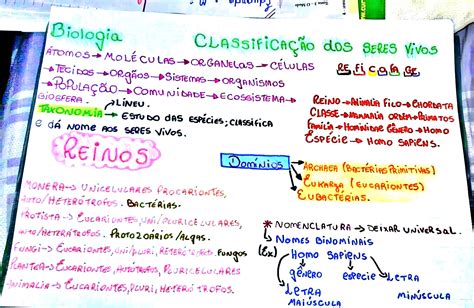 Biologia
Classificação dos seres vivos
Átomos → Moléculas → Organelas → Células
→ Tecidos → Orgãos → Sistemas → Organismos
→ População → Comunidade → Ecossistema →
Biosfera.
RE FI C O FA G E
Reino → Animalia Filo → Chordata
Classe → Mammalia Ordem → Primatas
Família → Hominidae Gênero → Homo
Espécie → Homo Sapiens.
→ Lineu.
Taxonomia → estudo das espécies, classifica
e dá nome aos seres vivos.
Reinos
Domínios
Archaea (Bactérias primitivas)
Eukarya (Eucariontes)
Eubactérias.
Monera → Unicelulares Procariontes,
Auto/Heterótrofos. Bactérias.
Protista → Eucariontes, Uni/Pluricelulares,
Auto/Heterótrofos. Protozoários/Algas.
Fungi → Eucariontes, Uni/Pluri, Heterótrofos. Fungos
Plantea → Eucariontes, Autótrofos, Pluricelulares
Animalia → Eucariontes, Pluri, Heterótrofos.
* Nomenclatura → Deixar universal.
↳ Nomes Binominais
(Ex) → Homo Sapiens
gênero espécie → Letra
minúscula
↳ Letra
Maiúscula